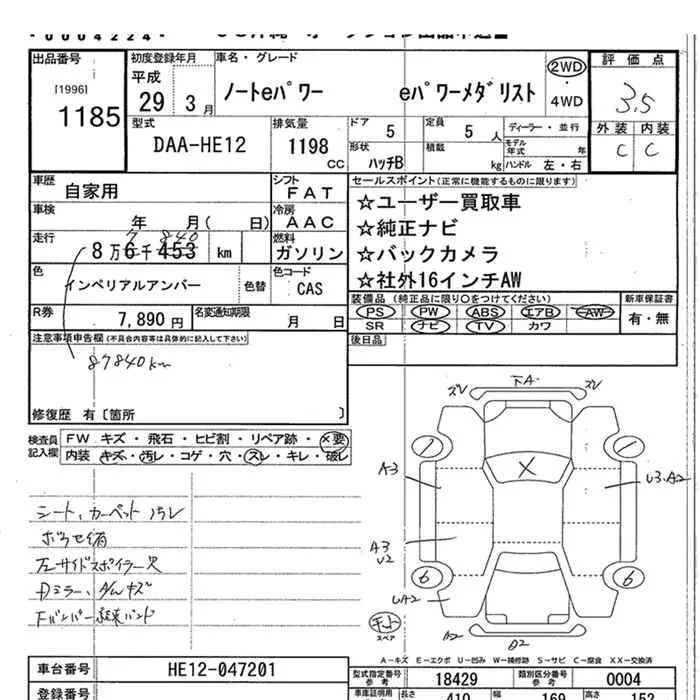 *0004224*
出品番号 初度登録年月 車名・グレード 2WD ・ 4WD 評価点
[1996]
1185
平成 29 3月 ノートeパワー eパワーメダリスト 3.5
型式 DAA-HE12 排気量 1198 CC
ドア 5 定員 5 人 ディーラー・並行 外装 内装
形状 ハッチB 積載 kg モデル年式 年 ハンドル 左・右 C C
車歴 自家用 シフト FAT セールスポイント(正常に機能するものに限ります)
車検 年 月( 日) 冷房 AAC ☆ユーザー買取車
走行 8万6千453 km 7 840 燃料 ガソリン ☆純正ナビ
☆バックカメラ
色 インペリアルアンバー 色替 色コード CAS ☆社外16インチAW
R券 7,890円 名変通知期限 月 日 装備品 (純正品に限り○をつけてください) 新車保証書
PS PW ABS エアB AW 有・無
SR ナビ TV カワ
注意事項申告欄 (不具合内容等は具体的に記入して下さい) 後日品
87840km
修復歴 有〔箇所 〕
検査員記入欄 FW キズ・飛石・ヒビ割・リペア跡・×要
内装 キズ・汚レ・コゲ・穴・スレ・キレ・破レ
シート、カーペット汚レ
左サイドスポイラー欠
ズレ 下A. ズレ
A3 X U3.A2
A3
U2
6 6
UA2
キット
スペア
A2 B2
A-キズ E-エクボ U-凹み W-補修跡 S-サビ C-腐食 XX-交換済
車台番号 HE12-047201 型式指定番号 参考 18429 類別区分番号 参考 0004
登録番号 車庫証明用 参考 長さ 410 幅 169 高さ 152